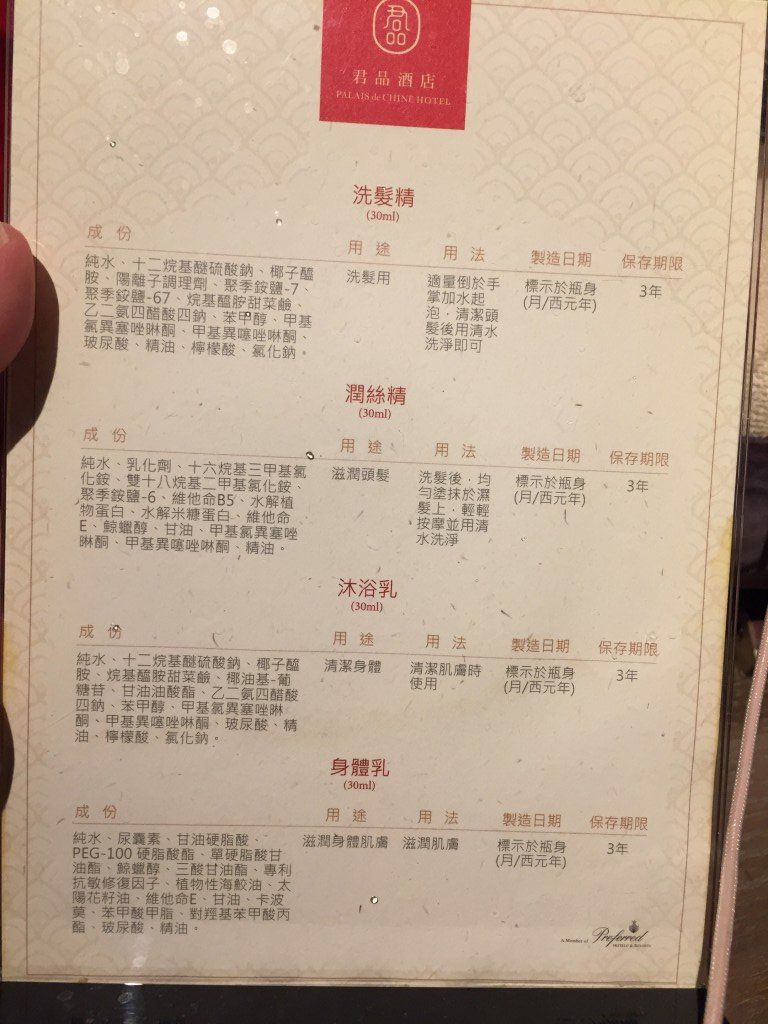 君品酒店
PALAIS de CHINE HOTEL
洗髮精
(30ml)
成份 用途 用法 製造日期 保存期限
純水、十二烷基醚硫酸鈉、椰子醯
胺、陽離子調理劑、聚季銨鹽-7、
聚季銨鹽-67、烷基醯胺甜菜鹼、
乙二氨四醋酸四鈉、苯甲醇、甲基
氯異塞唑啉酮、甲基異噻唑啉酮、
玻尿酸、精油、檸檬酸、氯化鈉。
洗髮用
適量倒於手
掌加水起
泡，清潔頭
髮後用清水
洗淨即可
標示於瓶身
(月/西元年)
3年
潤絲精
(30ml)
成份 用途 用法 製造日期 保存期限
純水、乳化劑、十六烷基三甲基氯
化銨、雙十八烷基二甲基氯化銨、
聚季銨鹽-6、維他命B5、水解植
物蛋白、水解米糠蛋白、維他命
E、鯨蠟醇、甘油、甲基氯異塞唑
啉酮、甲基異噻唑啉酮、精油。
滋潤頭髮
洗髮後，均
勻塗抹於濕
髮上，輕輕
按摩並用清
水洗淨
標示於瓶身
(月/西元年)
3年
沐浴乳
(30ml)
成份 用途 用法 製造日期 保存期限
純水、十二烷基醚硫酸鈉、椰子醯
胺、烷基醯胺甜菜鹼、椰油基-葡
糖苷、甘油油酸酯、乙二氨四醋酸
四鈉、苯甲醇、甲基氯異塞唑啉
酮、甲基異噻唑啉酮、玻尿酸、精
油、檸檬酸、氯化鈉。
清潔身體
清潔肌膚時
使用
標示於瓶身
(月/西元年)
3年
身體乳
(30ml)
成份 用途 用法 製造日期 保存期限
純水、尿囊素、甘油硬脂酸、
PEG-100 硬脂酸酯、單硬脂酸甘
油酯、鯨蠟醇、三酸甘油酯、專利
抗敏修復因子、植物性海鮫油、太
陽花籽油、維他命E、甘油、卡波
莫、苯甲酸甲脂、對羥基苯甲酸丙
酯、玻尿酸、精油。
滋潤身體肌膚
滋潤肌膚
標示於瓶身
(月/西元年)
3年
A Member of Preferred
HOTELS & RESORTS